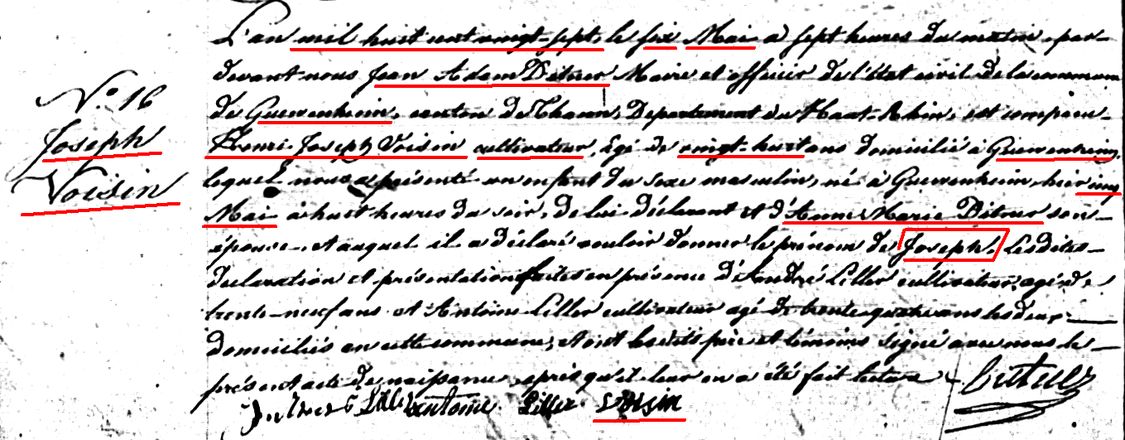 N.° 16
Joseph
Voisin
L'an mil huit cent vingt-sept le six Mai à sept heures du matin, par-
devant nous Jean Adam Ditner Maire et officier de l'état civil de la commune
de Guewenheim, canton de Thann, Département du Haut-Rhin, est comparu
Henri Joseph Voisin cultivateur, agé de vingt-huit ans domicilié à Guewenheim,
lequel nous a présenté un enfant du sexe masculin, né à Guewenheim, hier cinq
Mai à huit heures du soir, de lui déclarant et d'Anne Marie Ditner son
épouse, et auquel il a déclaré vouloir donner le prénom de Joseph. Lesdites
déclaration et présentation faites en présence d'André Liller cultivateur, agé de
trente-neuf ans et Antoine Liller cultivateur agé de trente quatre ans les deux
domiciliés en cette commune, et ont lesdits père et témoins signé avec nous le
présent acte de naissance, après qu'il leur en a été fait lecture
Antoine Liller Voisin